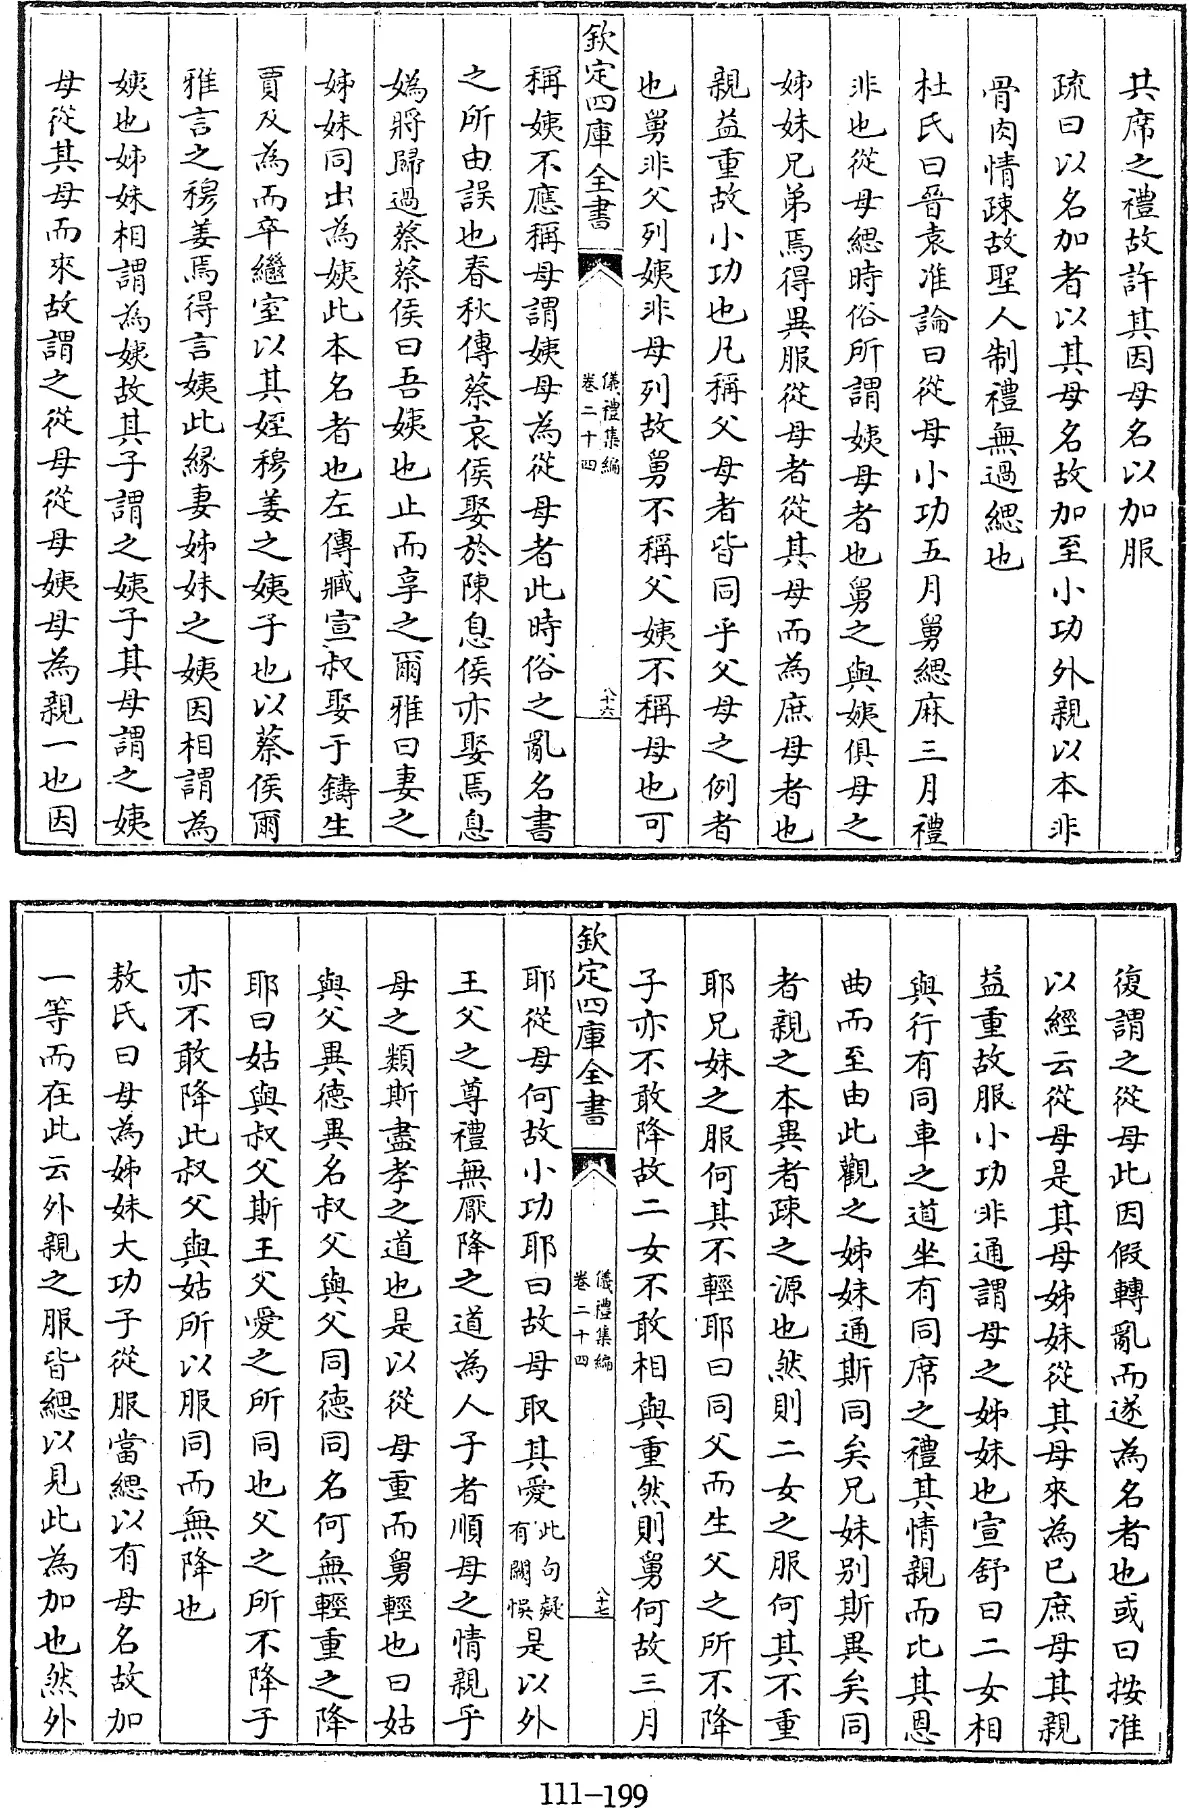 共席之禮故許其因母名以加服
疏曰以名加者以其母名故加至小功外親以本非
骨肉情疎故聖人制禮無過緦也
杜氏曰晉袁准論曰從母小功五月舅緦麻三月禮
非也從母緦時俗所謂姨母者也舅之與姨俱母之
姊妹兄弟焉得異服從母者從其母而為庶母者也
親益重故小功也凡稱父母者皆同乎父母之例者
也舅非父列姨非母列故舅不稱父姨不稱母也可
欽定四庫全書
儀禮集編
卷二十四
八十六
稱姨不應稱母謂姨母為從母者此時俗之亂名書
之所由誤也春秋傳蔡哀侯娶於陳息侯亦娶焉息
媯將歸過蔡蔡侯曰吾姨也止而享之爾雅曰妻之
姊妹同出為姨此本名者也左傳臧宣叔娶于鑄生
賈及為而卒繼室以其姪穆姜之姨子也以蔡侯爾
雅言之穆姜焉得言姨此緣妻姊妹之姨因相謂為
姨也姊妹相謂為姨故其子謂之姨子其母謂之姨
母從其母而來故謂之從母從母姨母為親一也因
復謂之從母此因假轉亂而遂為名者也或曰按准
以經云從母是其母姊妹從其母來為已庶母其親
益重故服小功非通謂母之姊妹也宣舒曰二女相
與行有同車之道坐有同席之禮其情親而比其恩
曲而至由此觀之姊妹通斯同矣兄妹別斯異矣同
者親之本異者疎之源也然則二女之服何其不重
耶兄妹之服何其不輕耶曰同父而生父之所不降
子亦不敢降故二女不敢相與重然則舅何故三月
欽定四庫全書
儀禮集編
卷二十四
八十七
耶從母何故小功耶曰故母取其愛此句疑有闕悞是以外
王父之尊禮無厭降之道為人子者順母之情親乎
母之類斯盡孝之道也是以從母重而舅輕也曰姑
與父異德異名叔父與父同德同名何無輕重之降
耶曰姑與叔父斯王父愛之所同也父之所不降子
亦不敢降此叔父與姑所以服同而無降也
敖氏曰母為姊妹大功子從服當緦以有母名故加
一等而在此云外親之服皆緦以見此為加也然外
111-199